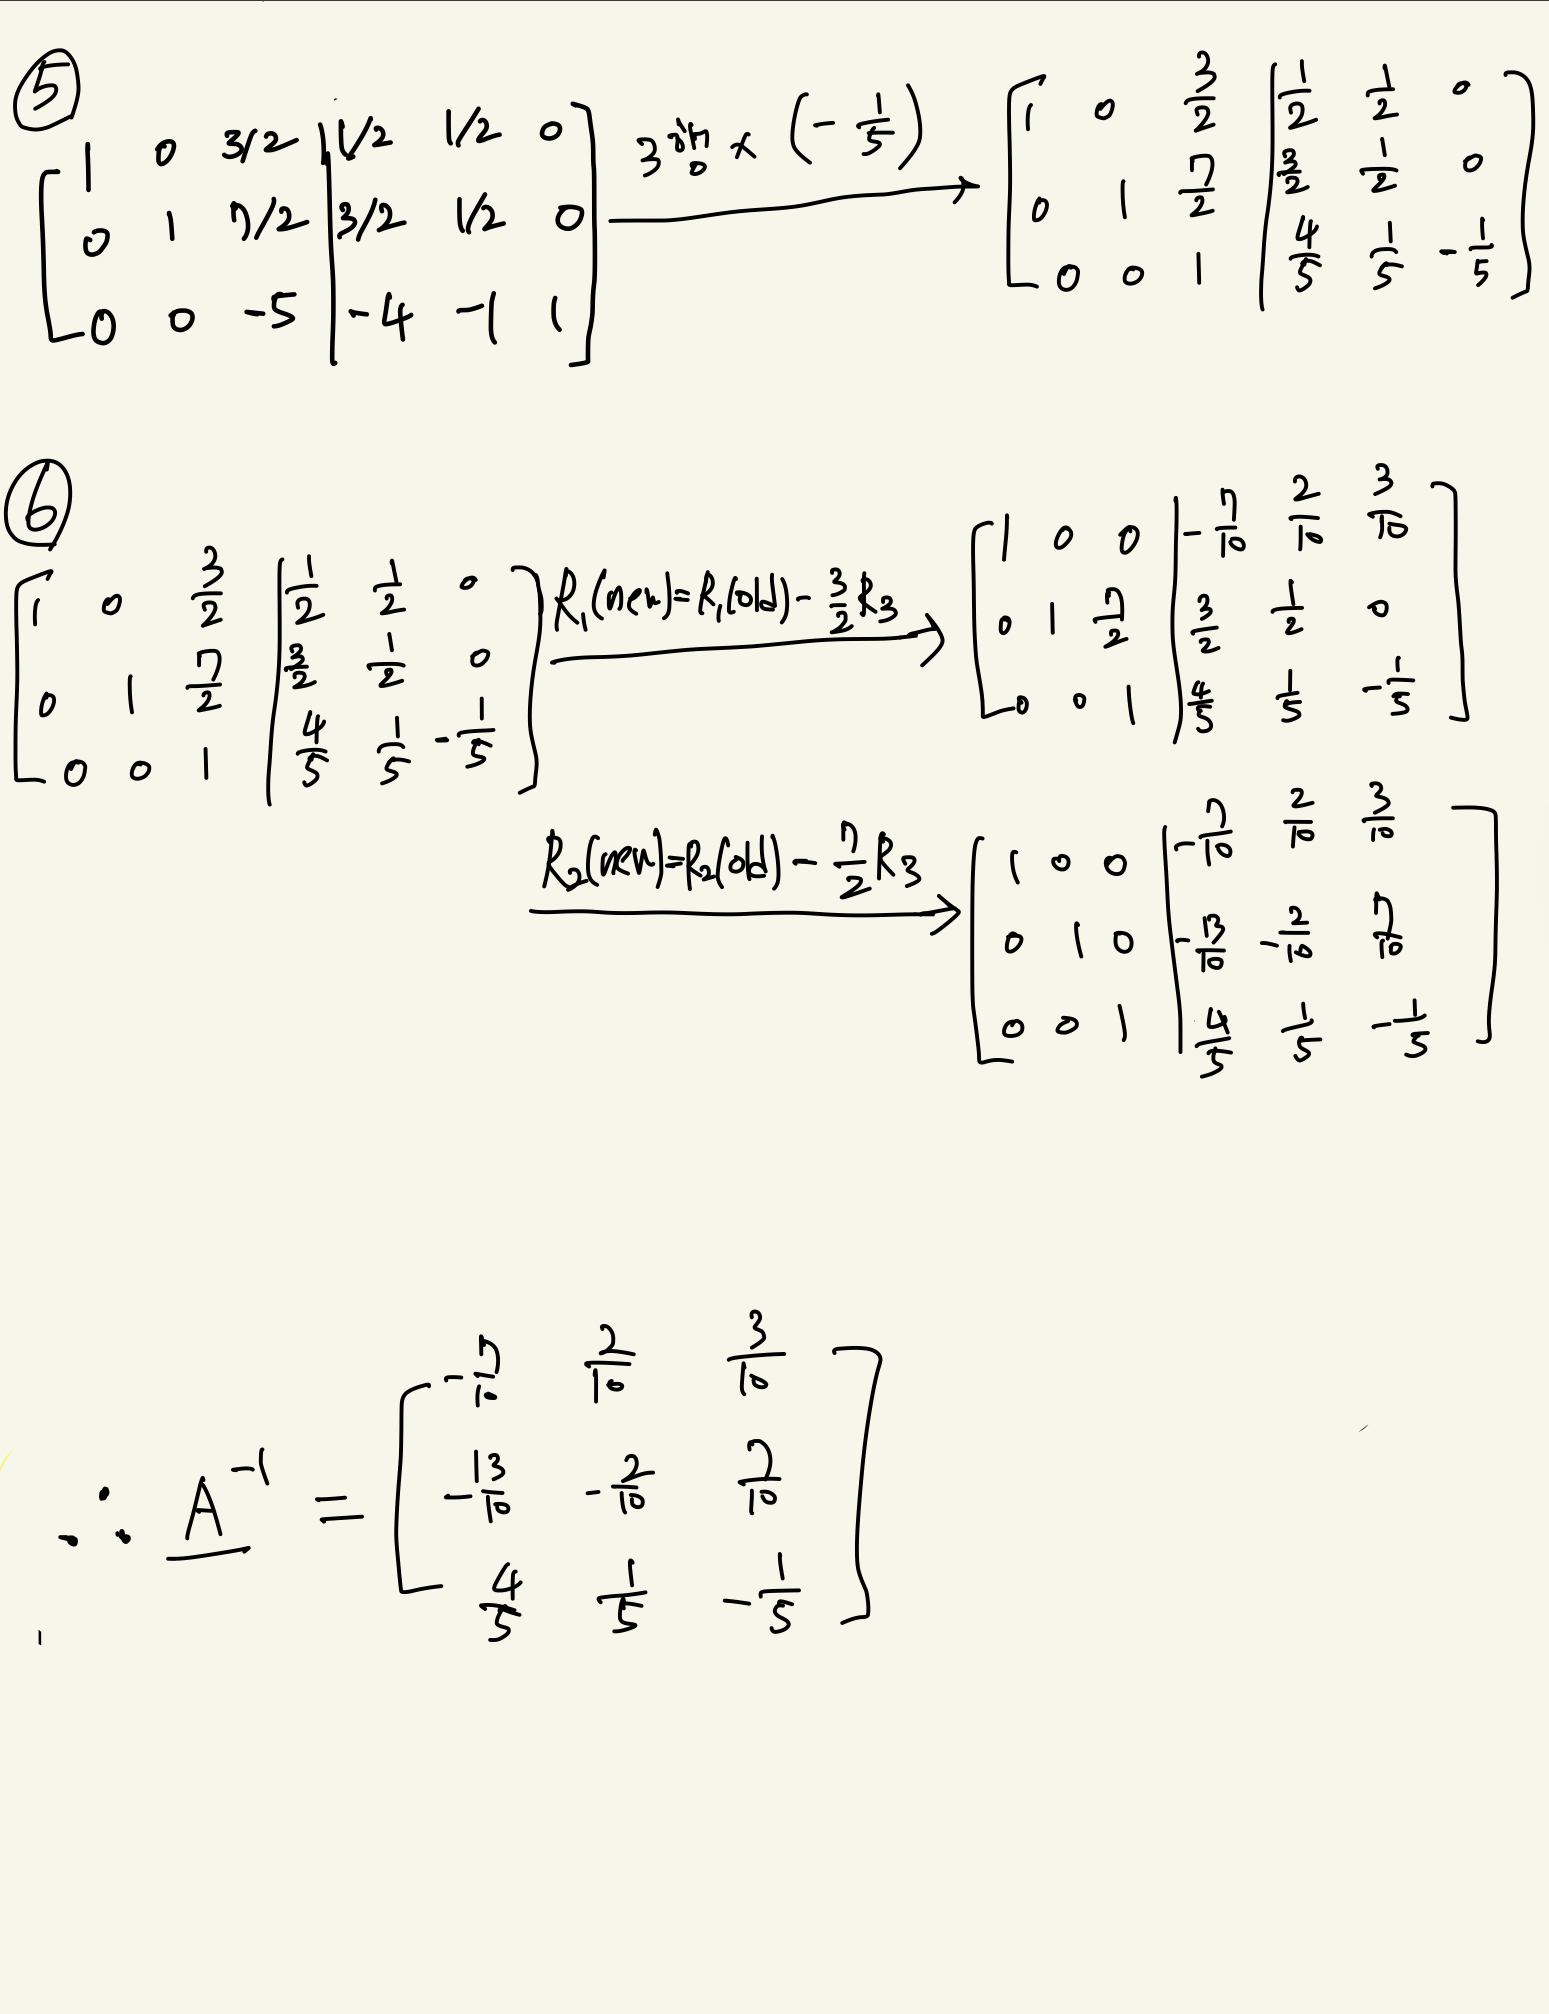 ⑤
[ 1 0 3/2 | 1/2 1/2 0 ]
[ 0 1 7/2 | 3/2 1/2 0 ]
[ 0 0 -5 | -4 -1 1 ]
3행 × (-1/5) →
[ 1 0 3/2 | 1/2 1/2 0 ]
[ 0 1 7/2 | 3/2 1/2 0 ]
[ 0 0 1 | 4/5 1/5 -1/5 ]
⑥
[ 1 0 3/2 | 1/2 1/2 0 ]
[ 0 1 7/2 | 3/2 1/2 0 ]
[ 0 0 1 | 4/5 1/5 -1/5 ]
R₁(new)=R₁(old)-3/2 R₃ →
[ 1 0 0 | -7/10 2/10 3/10 ]
[ 0 1 7/2 | 3/2 1/2 0 ]
[ 0 0 1 | 4/5 1/5 -1/5 ]
R₂(new)=R₂(old)-7/2 R₃ →
[ 1 0 0 | -7/10 2/10 3/10 ]
[ 0 1 0 | -13/10 -2/10 7/10 ]
[ 0 0 1 | 4/5 1/5 -1/5 ]
∴ A⁻¹ =
[ -7/10 2/10 3/10 ]
[ -13/10 -2/10 7/10 ]
[ 4/5 1/5 -1/5 ]